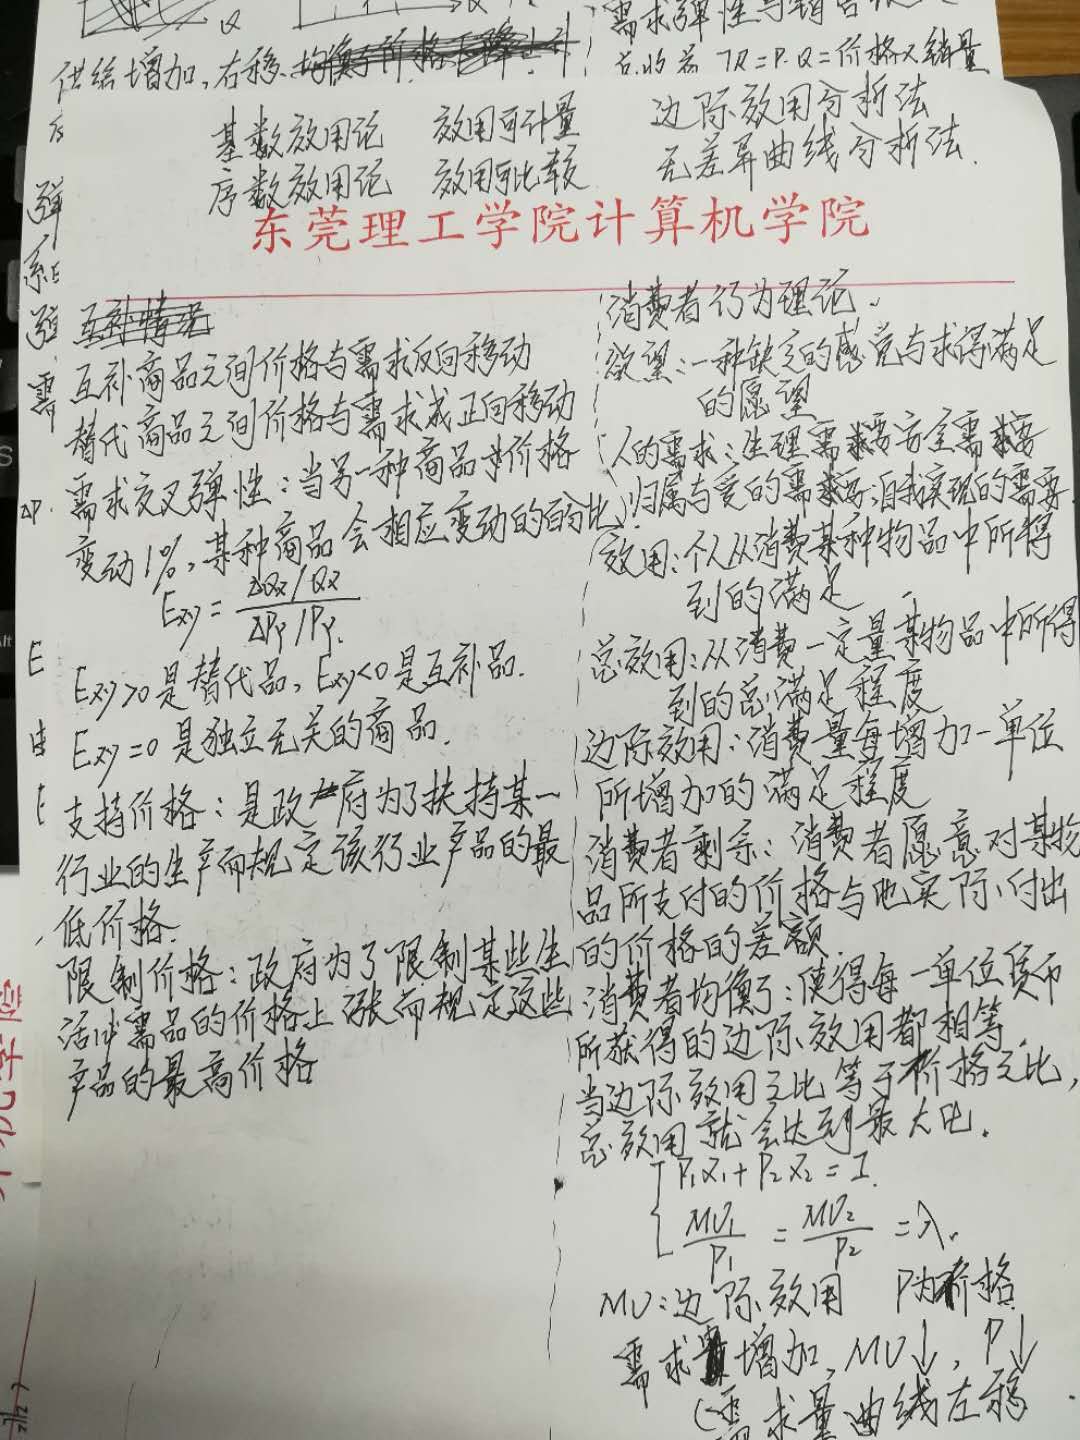 供给增加,右移.
需求弹性与销售
总收益 TR=P.Q=价格×销量
基数效用论 效用可计量 边际效用分析法
序数效用论 效用可比较 无差异曲线分析法.
东莞理工学院计算机学院
互补情况
互补商品之间价格与需求反向移动
替代商品之间价格与需求成正向移动
需求交叉弹性:当另一种商品价格
变动1%,某种商品会相应变动的百分比
Exy = ΔQx/Qx
ΔPy/Py.
Exy>0是替代品, Exy<0是互补品.
Exy=0是独立无关的商品.
支持价格:是政府为了扶持某一
行业的生产而规定该行业产品的最
低价格.
限制价格:政府为了限制某些生
活必需品的价格上涨而规定这些
产品的最高价格
消费者行为理论.
欲望:一种缺乏的感觉与求得满足
的愿望
人的需求:生理需要安全需要
归属与爱的需要,自我实现的需要.
效用:个人从消费某种物品中所得
到的满足
总效用:从消费一定量某物品中所得
到的总满足程度
边际效用:消费量每增加一单位
所增加的满足程度
消费者剩余:消费者愿意对某物
品所支付的价格与他实际付出
的价格的差额
消费者均衡:使得每一单位货币
所获得的边际效用都相等.
当边际效用之比等于价格之比,
总效用就会达到最大化.
P₁X₁+P₂X₂=I.
MU₁/P₁ = MU₂/P₂ = λ.
MU:边际效用 P为价格
需求量增加,MU↓, P↓
(需求量曲线左移
弹
系
需
ΔP.
E
由